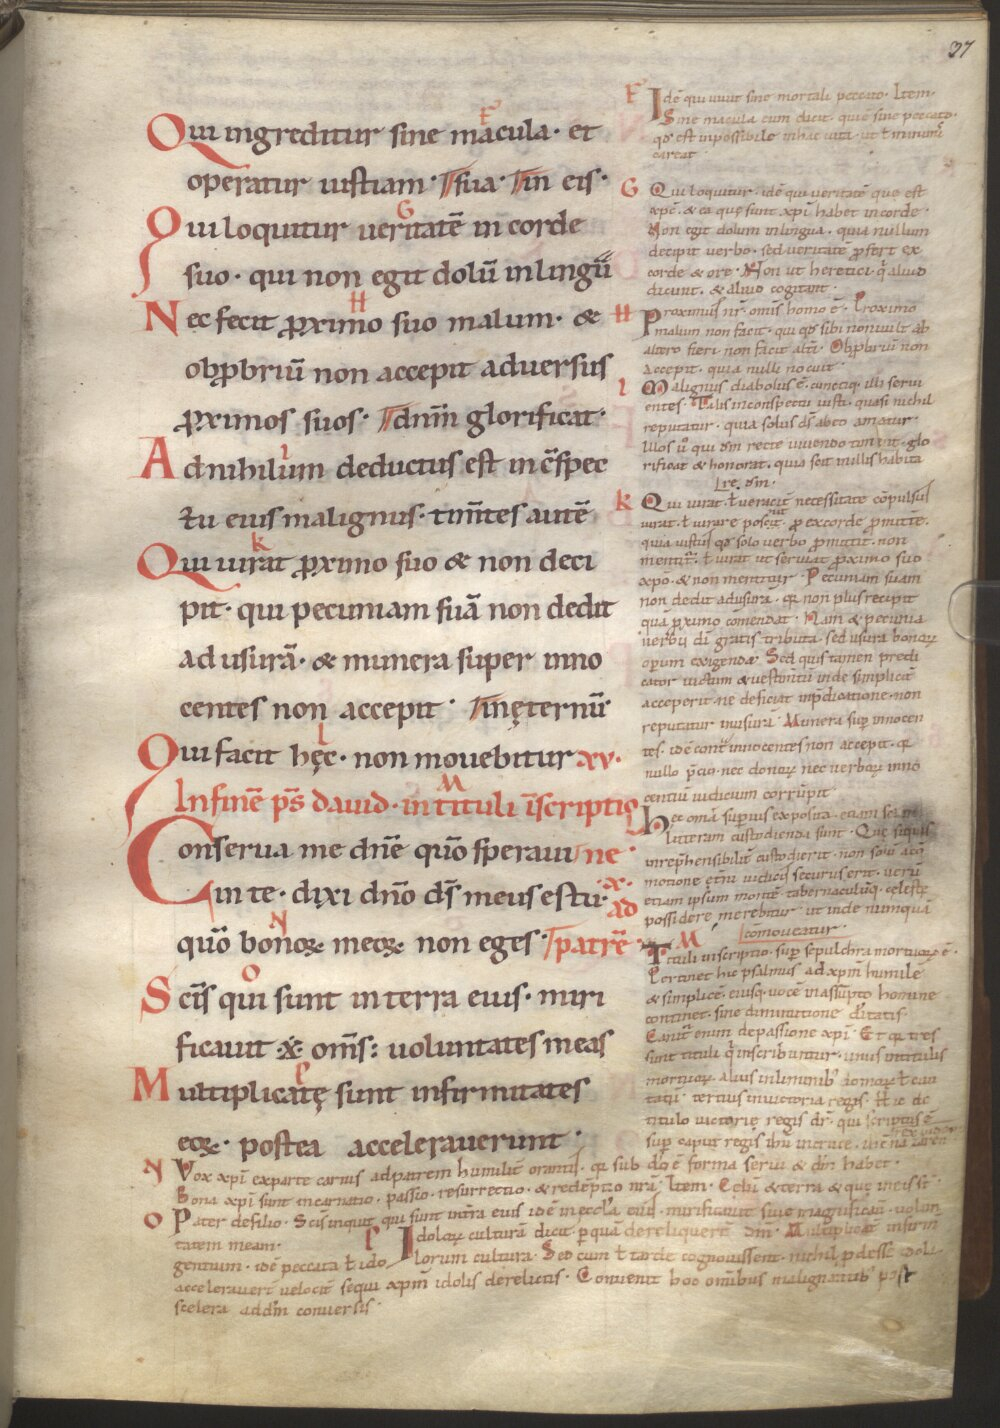 37
Qui ingreditur sine macula · et
operatur iustiam · sua · in eis ·
Qui loquitur ueritatē in corde
suo · qui non egit dolū in lingū
Nec fecit ꝓximo suo malum · &
obꝓbriū non accepit aduersus
ꝓximos suos · dnm̄ glorificat ·
Ad nihilum deductus est in c̄spec
tu eius malignus · timn̄tes autē
Qui iurat ꝓximo suo & non deci
pit · qui pecuniam suā non dedit
ad usurā · & munera super inno
centes non accepit · in ęternū
Qui facit hęc · non mouebitur xv ·
In finē ps̄ dauid · in tituli īscriptio
ne ·
Conserua me dn̄e quō speraui
in te · dixi dn̄o ds̄ meus es tu ·
ad
quō bonoꝝ meoꝝ non eges · patrē
Scīs qui sunt in terra eius · miri
ficauit · x̄ · omīs : uoluntates meas
Multiplicatę sunt infirmitates
eoꝝ · postea accelerauerunt ·
F Idē qui uiuit sine mortali peccato · Item ·
Sine macula cum dicit · quasi sine peccato ·
qd̄ est inpossibile in hac uita · ut ł minimū
careat
G Qui loquitur · idē qui ueritatē que est
xp̄c · & ea quę sunt xp̄i habet in corde ·
Non egit dolum in lingua · quia nullum
decipit uerbo · sed ueritatē ꝓfert ex
corde & ore · Non ut heretici · q̄ aliud
dicunt · & aliud cogitant ·
H Proximus nr̄ · omīs homo ē · Proximo
malum non facit · qui qd̄ sibi non uult ab
altero fieri non facit altī · Obꝓbriū non
accepit · quia nulli nocuit ·
I Malignus diabolus ē · cunctiq · illi serui
entes · Talis in conspectu iusti · quasi nichil
reputatur · quia solus ds̄ ab eo amatur ·
Illos ū qui dm̄ recte uiuendo timent · glo
rificat & honorat · quia scit in illis habita
re · dm̄ ·
K Qui iurat · ł ueracit̄ necessitate cōpulsus
iurat · ł iurare poscit · ꝓ ex corde ꝓmittit ·
quia iustus qd̄ solo uerbo ꝓmittit · non
mentit̄ · ł iurat ut seruiat ꝓximo suo
xp̄o · & non mentitur · Pecuniam suam
non dedit ad usurā · qa non plus recipit
quā ꝓximo comendat · Nam & pecunia
uerbi dī gratis tributa · sed usura bonoꝝ
operum exigenda · Sed quis tamen predi
cator uictum & uestimtū inde simplicit̄
acceperit · ne deficiat in p̄dicatione · non
reputatur in usurā · Munera sup innocen
tes · idē cont̄ innocentes non accepit · qa
nullo p̄cio · nec donoꝝ nec uerboꝝ inno
centiū iudicium corrūpit ·
L hec omīa suꝑius exposita · etiam
litteram custodienda sunt · Que siquis
inrep̄hensibilit̄ custodierit · non solū
motione et̄ni iudicii securus erit · uerū
etiam ipsum montē tabernaculūq · celestę
possidere merebitur · ut inde numquā
comoueatur ·
M Tituli inscriptio · suꝑ sepulchra mortuoꝝ ē ·
Pertinet hic psalmus ad xp̄m humile
& simplicē · eiusq · uocē in assūpto homine
continet · sine diminutione diuitatis ·
Canit̄ enim de passione xp̄i · Et qa tres
sunt tituli q̄ inscribuntur · unus in titulis
mortuoꝝ · alius in liminib; domoꝝ ł ciui
tatū · tertius in uictoria regis · Hic de
titulo uictorię regis dr̄ · qui scriptus ē
suꝑ caput regis ihū in cruce · ihc nazaren
N Vox xp̄i ex parte carnis ad patrem humilit̄ orantis · qa sub dō ē forma serui & dn̄m habet ·
Bona xp̄i sunt incarnatio · passio · resurrectio · & redēptio nrā · Item · Celū & terra & que in eis sē ·
O Pater de filio · Scīs inquit qui sunt in terra eius idē in ęccla eius · mirificauit siue magnificaui · uolun
tatem meam ·
P Idoloꝝ culturā dicit ꝑ quā dereliquerē dm̄ · Multiplicatę infirm
gentium · idē peccata ł ido
lorum cultura · Sed cum ł tarde cognouissent · nichil ꝓdesse idoli
accelerauerē uelocit̄ sequi xp̄m idolis derelictis · Conuenit hoc omībus malignantib; post
scelera ad dm̄ conuersis ·